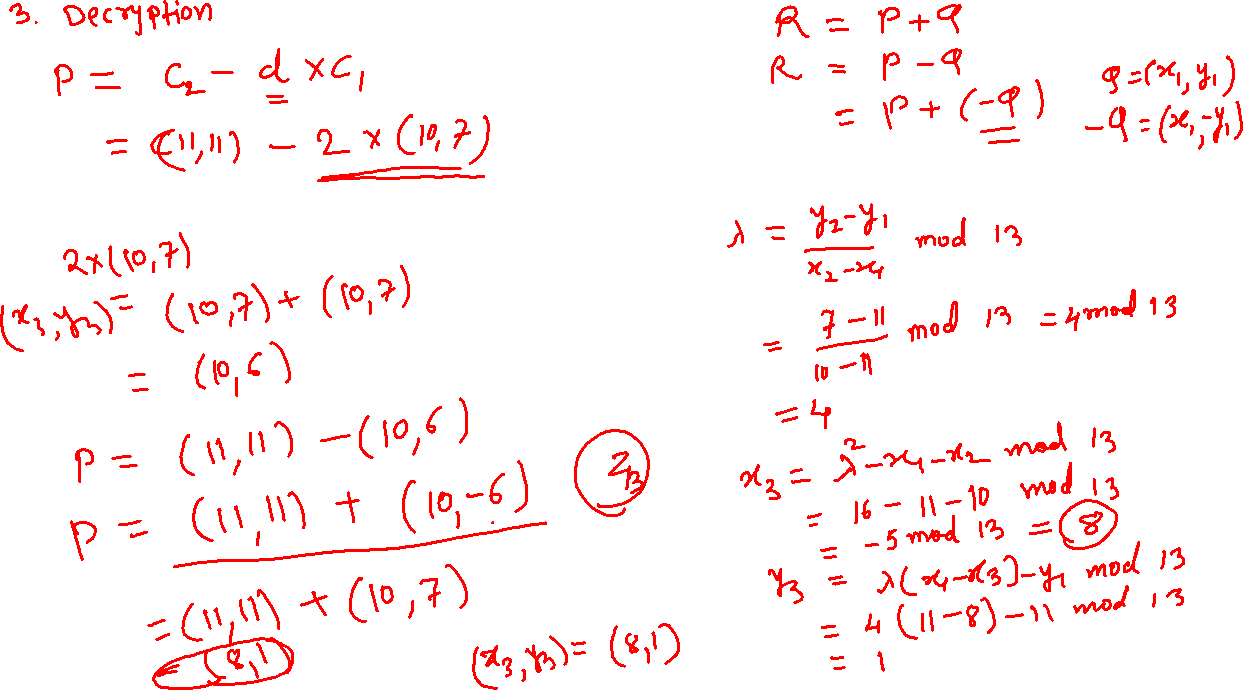 3. Decryption
P = C₂ - d × C₁
= (11,11) - 2 × (10,7)
2×(10,7)
(x₃,y₃) = (10,7) + (10,7)
= (10,6)
P = (11,11) - (10,6)
P = (11,11) + (10,-6)
Z₁₃
= (11,11) + (10,7)
= (8,1)
(x₃,y₃) = (8,1)
R = P + Q
R = P - Q
= P + (-Q)
Q = (x₁, y₁)
-Q = (x₁,-y₁)
λ = y₂-y₁ / x₂-x₁ mod 13
= 7-11 / 10-11 mod 13 = 4 mod 13
= 4
x₃ = λ²-x₁-x₂ mod 13
= 16-11-10 mod 13
= -5 mod 13 = 8
y₃ = λ(x₁-x₃)-y₁ mod 13
= 4(11-8)-11 mod 13
= 1